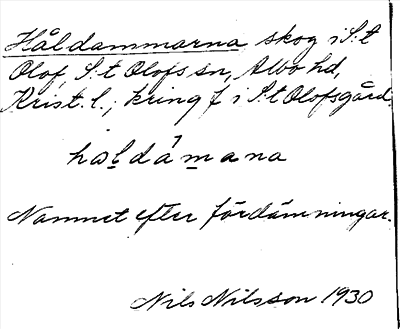 Håldammarna skog i S:t
Olof, S:t Olofs sn, Albo hd,
Krist. l.; kring f i S:t Olofsgård.
haldámana
Namnet efter fördämningar.
Nils Nilsson 1930